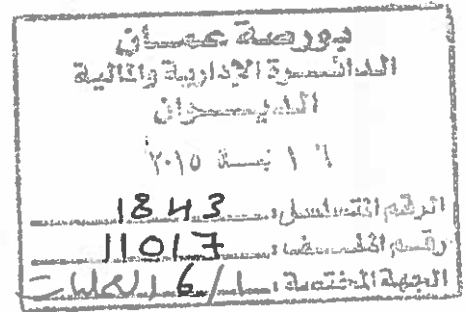 بورصة عمان
الدائرة الإدارية والمالية
الديوان
١٦ نيسان ٢٠١٥
الرقم المتسلسل: 1843
رقم الملف: 11017
الجهة المختصة: